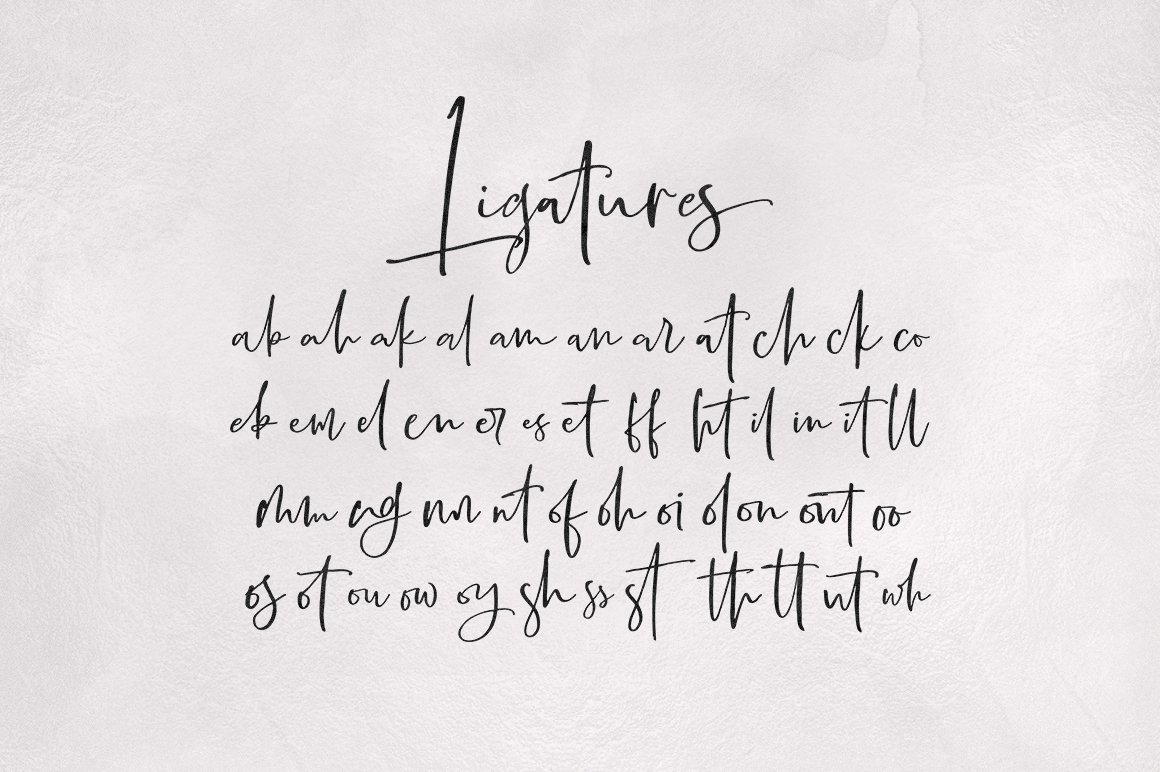 Ligatures
ab ah ak al am an ar at ch ck co
eb em el en er es et ff ht il in it ll
mm ng nn nt of oh oi ol on ont oo
os ot ou ow oy sh ss st th tt ut wh